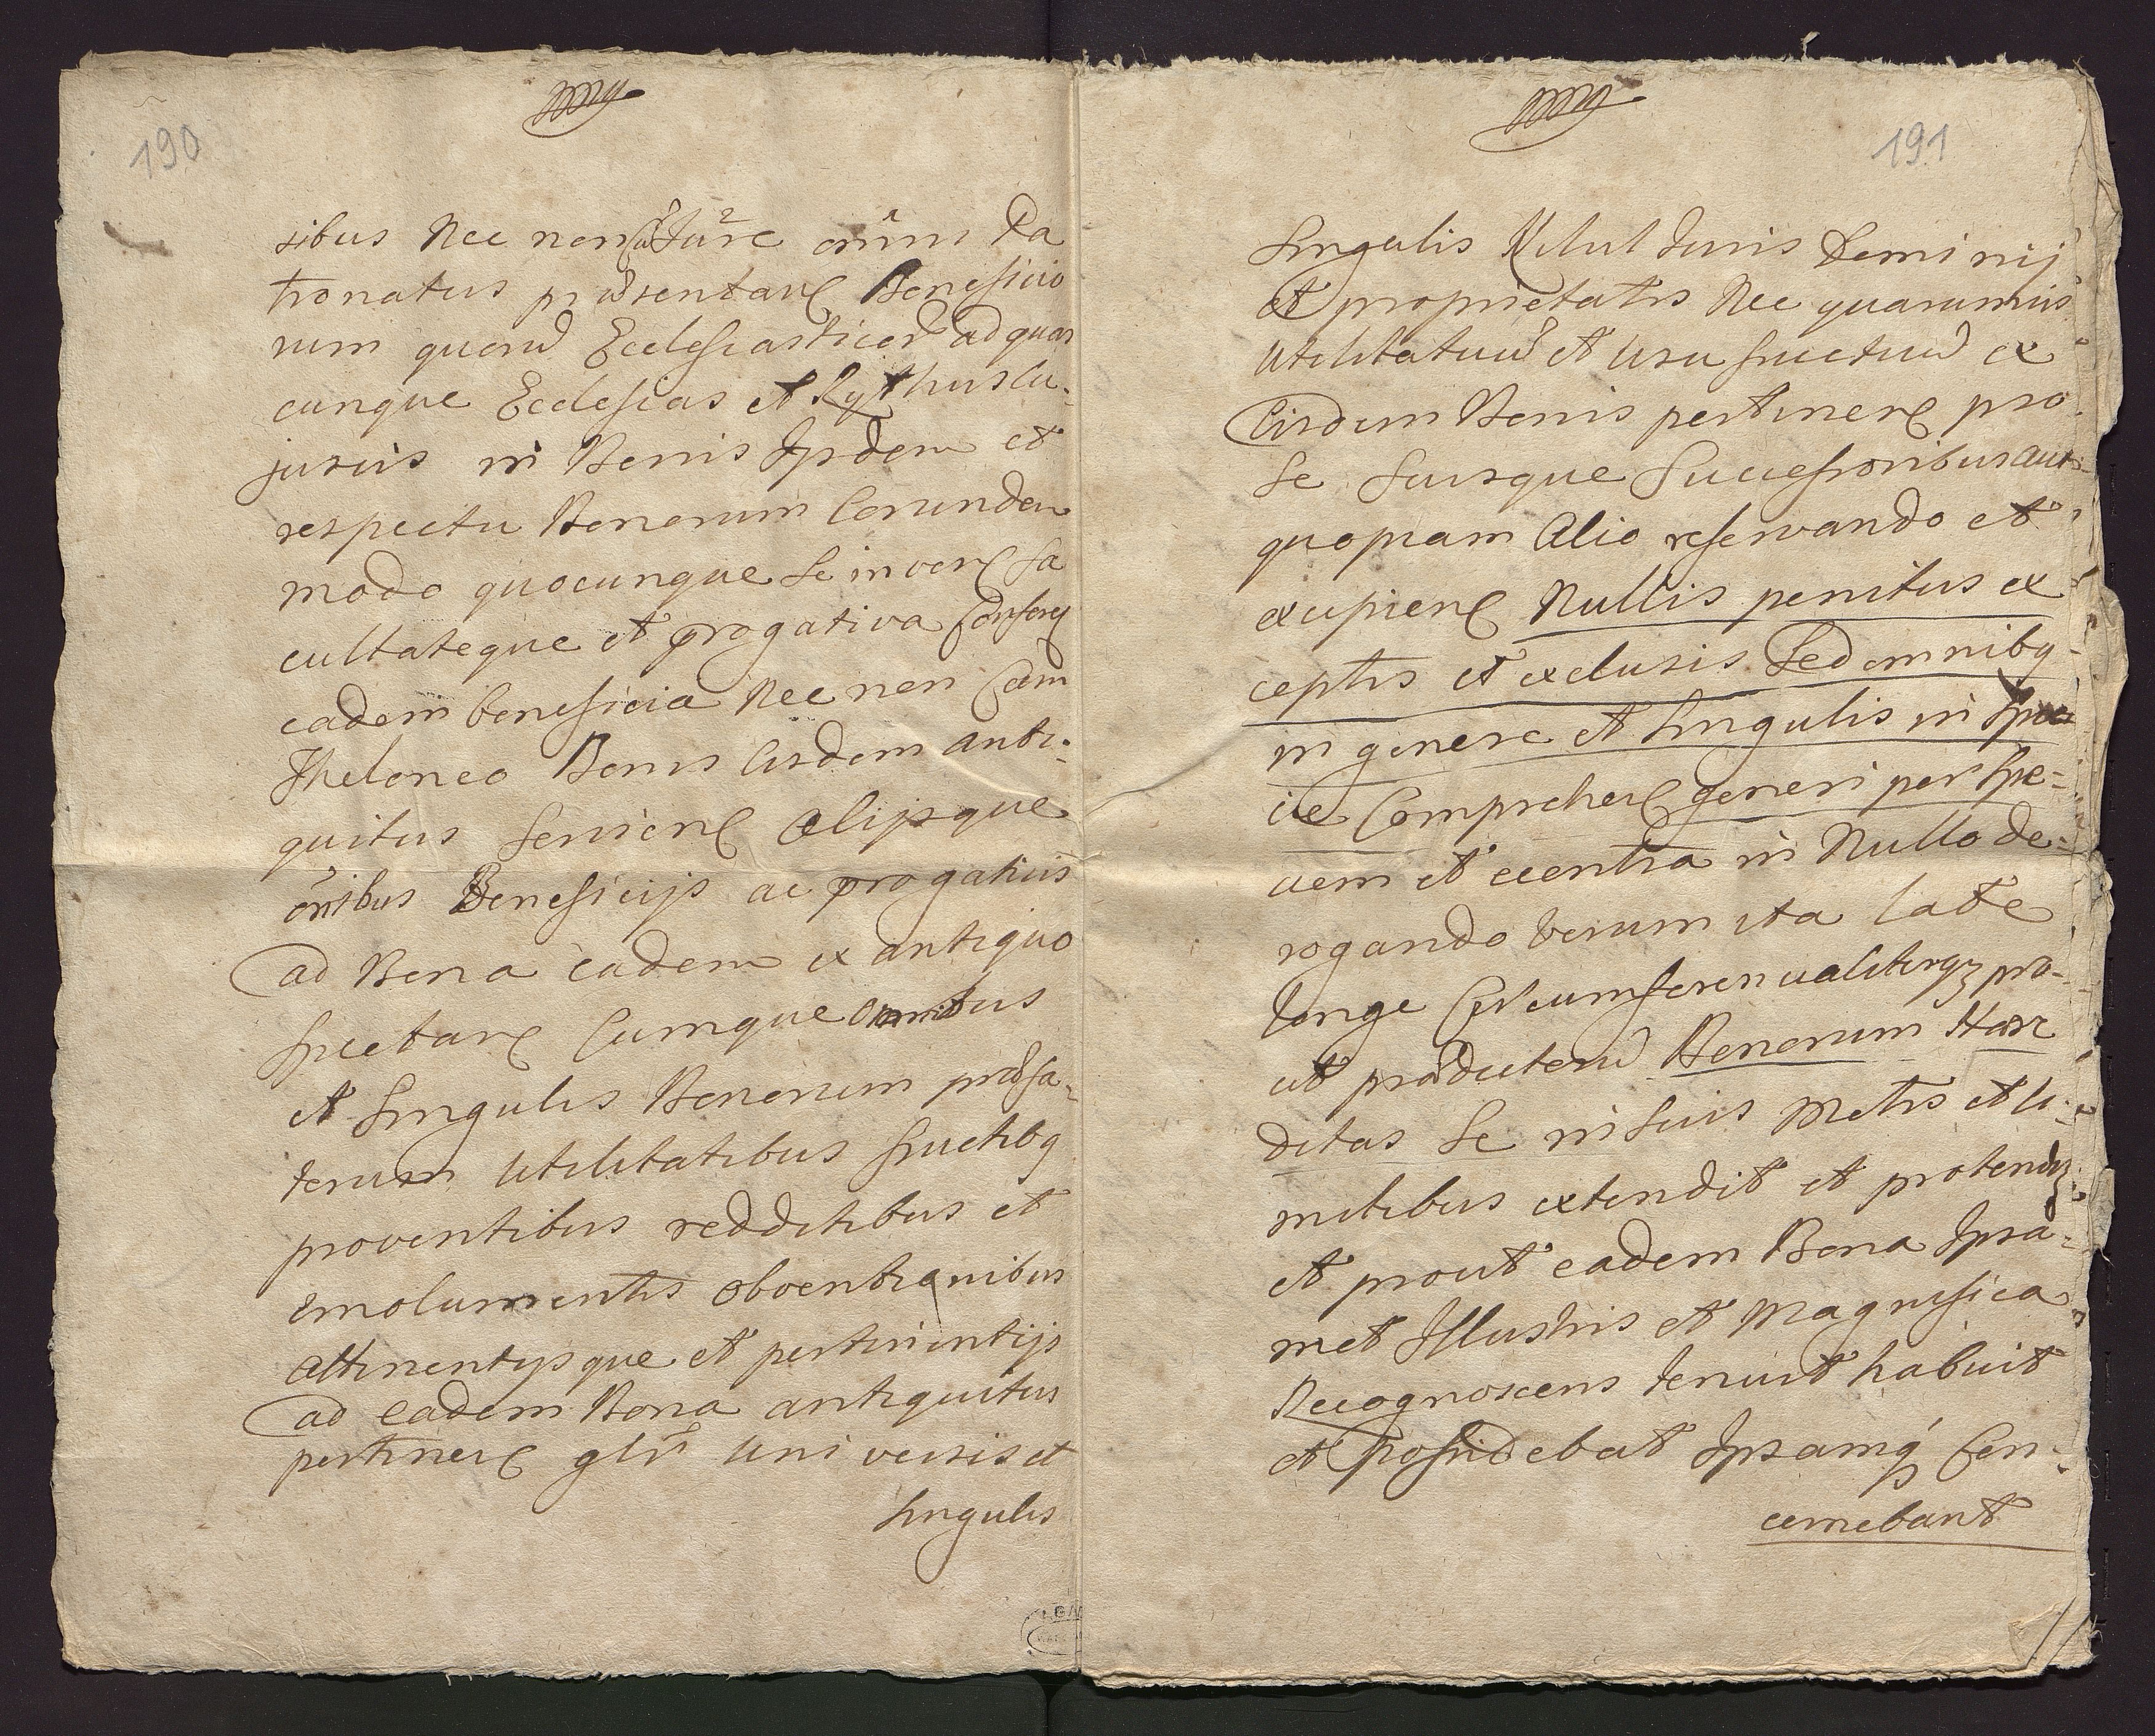 190
sibus Nec non Jure omni Pa
tronatus praesentan Beneficio
rum quorum Ecclesiasticorum ad quas
cunque Ecclesias et Rythus cu-
jusvis in Bonis Ijsdem et
respectu Bonorum Eorundem
modo quocunque se inven fa
cultateque et progativa Conferen
eadem beneficia Nec non Cum
Theloneo Bonis Eisdem anti-
quitus Servien Alijsque
omnibus Beneficijs ac progativis
ad Bona eadem ex antiquo
spectan Cumque omnibus
et singulis Bonorum praefa-
torum Utilitatibus fructibq
proventibus redditibus et
emolumentis obventionibus
attinentysque et pertinentijs
ad eadem Bona antiquitus
pertinen glr universis et
singulis
191
Singulis Nihil Juris Dominij
et proprietatis Nec quarumvis
Utilitatum et Usu fructuum ex
Eisdem Bonis pertinen pro
se suisque Successoribus aut
quopiam Alio reservando et
excipien Nullis penitus ex
ceptis et exclusis Sed omnibq
in genere et singulis in Spe
cie Comprehen generi per Spe-
ciem et econtra in Nullo de-
rogando verum ita late
longe Circumferencialiterqz pro-
ut praedictorum Bonorum Hae
ditas se in suis Metis et li-
mitibus extendit et protendit
et prout eadem Bona Ipsa-
met Illustris et Magnifica
Recognoscens tenuit habuit
et possidebat Ipsamq Con-
cernebant